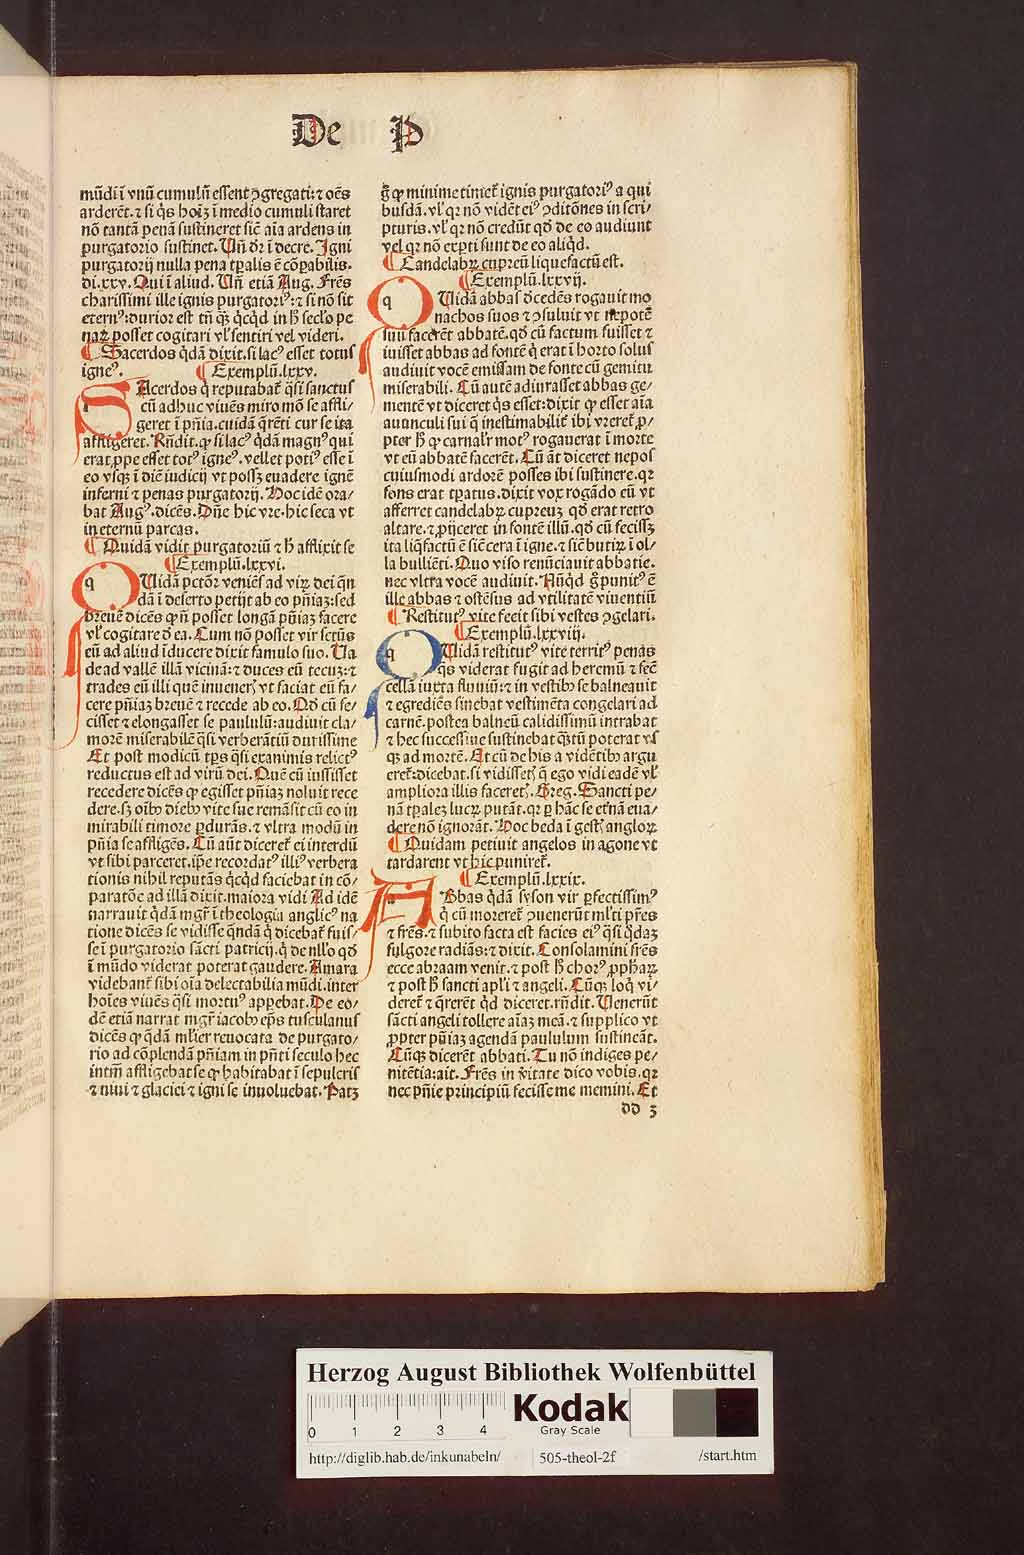 De P
mūdi ī vnū cumulū essent ꝯgregati: ⁊ oēs
arderēt. ⁊ si q̇s hoīꝫ ī medio cumuli staret
nō tantā penā sustineret sic̄ aīa ardens in
purgatorio sustinet. Un̄ dr̄ ī decre. Igni
purgatorij nulla pena tꝑalis ē cōꝑabilis.
di. xxv. Qui ī aliud. Un̄ etiā Aug. Frēs
charissimi ille ignis purgatoriꝰ: ⁊ si nō sit
eternꝰ: durior est tn̄ q̇ꝫ q̇cq̇d in h̄ sec̄lo pe
naꝝ posset cogitari vl̓ sentiri vel videri.
¶ Sacerdos q̇dā dixit. si lacꝰ esset totus
igneꝰ. ¶ Exemplū. lxxv.
SAcerdos q̇ reputabat̄ q̇si sanctus
cū adhuc viuēs miro mō se affli-
geret ī pn̄ia. cuidā q̇rēti cur se ita
affligeret. Rn̄dit. ꝙ si lacꝰ q̇dā magnꝰ qui
erat ꝓpe esset totꝰ igneꝰ. vellet potiꝰ esse ī
eo vsqꝫ ī diē iudicij vt possꝫ euadere ignē
inferni ⁊ penas purgatorij. Hoc idē ora-
bat Augꝰ. dicēs. Dn̄e hic vre. hic seca vt
in eternū parcas.
¶ Quidā vidit purgatoriū ⁊ h̄ afflixit se
¶ Exemplū. lxxvi.
q UIdā pctōr veniēs ad viꝝ dei qn̄
dā ī deserto petijt ab eo pn̄iaꝫ: sed
breuē dicēs ꝙ n̄ posset longā pn̄iaꝫ facere
vl̓ cogitare d̓ ea. Cum nō posset vir sctūs
eū ad aliud īducere dixit famulo suo. Ua
de ad vallē illā vicinā: ⁊ duces eū tecuꝫ: ⁊
trades eū illi quē inuenerꝭ vt faciat eū fa-
cere pn̄iaꝫ breuē ⁊ recede ab eo. Qd̓ cū fe-
cisset ⁊ elongasset se paululū: audiuit cla-
morē miserabilē q̇si verberātiū durissime
Et post modicū tꝑs q̇si exanimis relictꝰ
reductus est ad virū dei. Quē cū iussisset
recedere dicēs ꝙ egisset pn̄iaꝫ noluit rece
dere. sꝫ oībꝰ diebꝰ vite sue remāsit cū eo in
mirabili timore ꝑdurās. ⁊ vltra modū in
pn̄ia se affligēs. Cū aūt diceret̄ ei interdū
vt sibi parceret. ip̄e recordatꝰ illiꝰ verbera
tionis nihil reputās q̇cq̇d faciebat in cō-
paratōe ad illā dixit. maiora vidi Ad idē
narrauit q̇dā mgr̄ ī theologia anglicꝰ na
tione dicēs se vidisse q̇ndā q̇ dicebat̄ fuis-
se ī purgatorio sācti patricij. q̇ de nll̓o qd̓
ī mūdo viderat poterat gaudere. Amara
videbant̄ sibi oīa delectabilia mūdi. inter
hoīes viuēs q̇si mortuꝰ apꝑebat. De eo-
dē etiā narrat mgr̄ iacobꝰ ep̄s tusculanus
dicēs ꝙ q̇dā ml̓ier reuocata de purgato-
rio ad cōplendā pn̄iam in pn̄ti seculo hec
intm̄ affligebat se ꝙ habitabat ī sepulcris
⁊ niui ⁊ glaciei ⁊ igni se inuoluebat. Patꝫ
g̊ ꝙ minime timet̄ ignis purgatoriꝰ a qui
busdā. vl̓ qꝛ nō vidēt eiꝰ ꝯditōnes in scri-
pturis. vl̓ qꝛ nō credūt qd̓ de eo audiunt
vel qꝛ nō exꝑti sunt de eo aliq̇d.
¶ Candelabꝝ cupreū liquefactū est.
¶ Exemplū. lxxvij.
q UIdā abbas d̓cedēs rogauit mo
nachos suos ⁊ ꝯsuluit vt nepotē
suū facerēt abbatē. qd̓ cū factum fuisset ⁊
iuisset abbas ad fontē q̇ erat ī horto solus
audiuit vocē emissam de fonte cū gemitu
miserabili. Cū autē adiurasset abbas ge-
mentē vt diceret q̇s esset: dixit ꝙ esset aīa
auunculi sui q̇ inestimabilit̄ ibi vreret̄ ꝓ-
pter h̄ ꝙ carnalr̄ motꝰ rogauerat ī morte
vt eū abbatē facerēt. Cū āt diceret nepos
cuiusmodi ardorē posses ibi sustinere. qꝛ
fons erat tꝑatus. dixit vox rogādo eū vt
afferret candelabꝝ cupreuꝫ qd̓ erat retro
altare. ⁊ ꝓijceret in fontē illū. qd̓ cū fecissꝫ
ita liq̇factū ē sic̄ cera ī igne. ⁊ sic̄ butiꝝ ī ol-
la bulliēti. Quo viso renūciauit abbatie.
nec vltra vocē audiuit. Nūq̇d g̊ punitꝰ ē
ille abbas ⁊ ostēsus ad vtilitatē viuentiū
¶ Restitutꝰ vite fecit sibi vestes ꝯgelari.
¶ Exemplū. lxxviij.
q UIdā restitutꝰ vite territꝰ penas
q̇s viderat fugit ad heremū ⁊ fec̄
cellā iuxta fluuiū: ⁊ in vestibꝰ se balneauit
⁊ egrediēs sinebat vestimēta congelari ad
carnē. postea balneū calidissimū intrabat
⁊ hec successiue sustinebat q̇ꝫtū poterat vs
qꝫ ad mortē. Et cū de his a vidētibꝰ argu
eret̄: dicebat. si vidissetꝭ q̄ ego vidi eadē vl̓
ampliora illis faceretꝭ. Greg. Sancti pe-
nā tꝑaleꝫ lucꝝ putāt. qꝛ ꝑ hāc se etn̄ā eua-
dere nō ignorāt. Hoc beda ī gestꝭ angloꝝ
¶ Quidam petiuit angelos in agone vt
tardarent vt hic puniret̄.
¶ Exemplū. lxxix.
ABbas q̇dā syson vir ꝑfectissimꝰ
q̇ cū moreret̄ ꝯuenerūt ml̓ti pr̄es
⁊ frēs. ⁊ subito facta est facies eiꝰ q̇si q̇daꝫ
fulgore radiās: ⁊ dixit. Consolamini frēs
ecce abraam venit. ⁊ post h̄ chorꝰ ꝓph̄aꝝ
⁊ post h̄ sancti apl̓i ⁊ angeli. Cūqꝫ loq̇ vi-
deret̄ ⁊ q̇rerēt q̇d diceret. rn̄dit. Uenerūt
sācti angeli tollere aīaꝫ meā. ⁊ supplico vt
ꝓpter pn̄iaꝫ agendā paululum sustineāt.
Cūqꝫ dicerēt abbati. Tu nō indiges pe-
nitētia: ait. Frēs in v̓itate dico vobis. qꝛ
nec pn̄ie principiū fecisse me memini. Et
dd 3
Herzog August Bibliothek Wolfenbüttel
0 1 2 3 4
Kodak
Gray Scale
http://diglib.hab.de/inkunabeln/ 505-theol-2f /start.htm